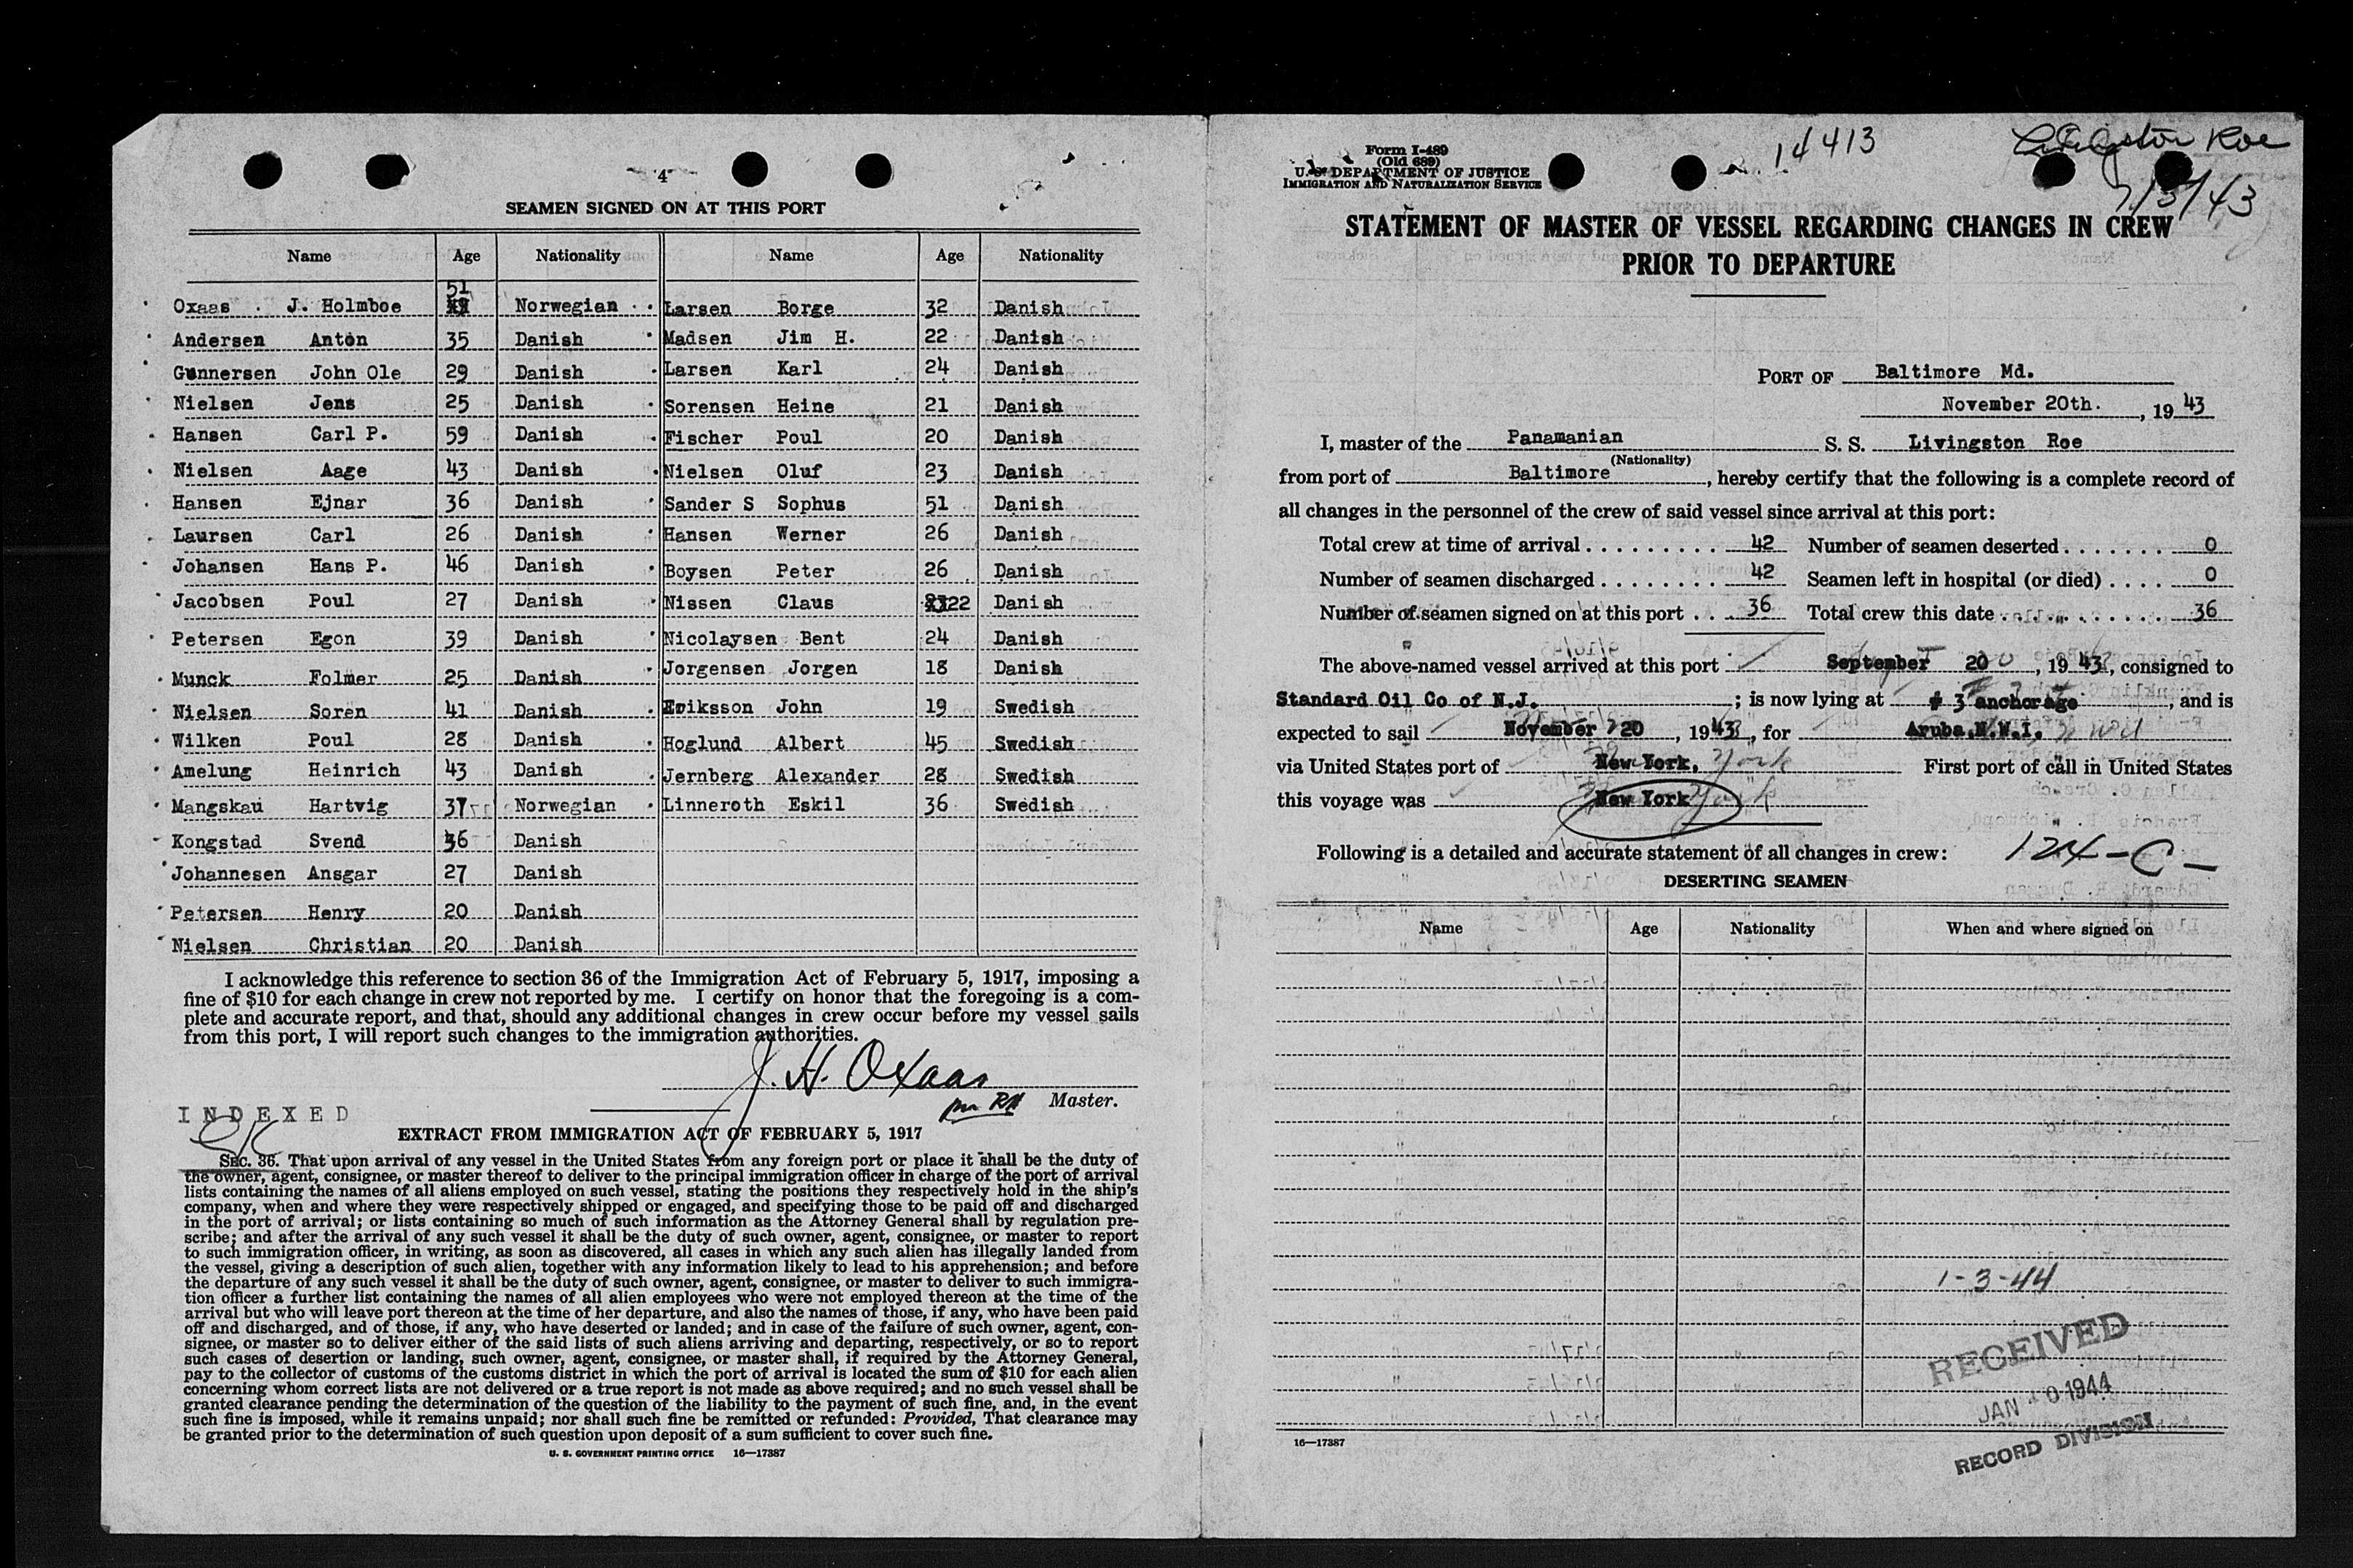 4
SEAMEN SIGNED ON AT THIS PORT
Name Age Nationality Name Age Nationality
Oxaas J. Holmboe 51 Norwegian Larsen Borge 32 Danish
Andersen Anton 35 Danish Madsen Jim H. 22 Danish
Gunnersen John Ole 29 Danish Larsen Karl 24 Danish
Nielsen Jens 25 Danish Sorensen Heine 21 Danish
Hansen Carl P. 59 Danish Fischer Poul 20 Danish
Nielsen Aage 43 Danish Nielsen Oluf 23 Danish
Hansen Ejnar 36 Danish Sander S Sophus 51 Danish
Laursen Carl 26 Danish Hansen Werner 26 Danish
Johansen Hans P. 46 Danish Boysen Peter 26 Danish
Jacobsen Poul 27 Danish Nissen Claus 22 Danish
Petersen Egon 39 Danish Nicolaysen Bent 24 Danish
Munck Folmer 25 Danish Jorgensen Jorgen 18 Danish
Nielsen Soren 41 Danish Eriksson John 19 Swedish
Wilken Poul 28 Danish Hoglund Albert 45 Swedish
Amelung Heinrich 43 Danish Jernberg Alexander 28 Swedish
Mangskau Hartvig 37 Norwegian Linneroth Eskil 36 Swedish
Kongstad Svend 36 Danish
Johannesen Ansgar 27 Danish
Petersen Henry 20 Danish
Nielsen Christian 20 Danish
I acknowledge this reference to section 36 of the Immigration Act of February 5, 1917, imposing a
fine of $10 for each change in crew not reported by me. I certify on honor that the foregoing is a com-
plete and accurate report, and that, should any additional changes in crew occur before my vessel sails
from this port, I will report such changes to the immigration authorities.
J. H. Oxaas
Master.
INDEXED
EXTRACT FROM IMMIGRATION ACT OF FEBRUARY 5, 1917
SEC. 36. That upon arrival of any vessel in the United States from any foreign port or place it shall be the duty of
the owner, agent, consignee, or master thereof to deliver to the principal immigration officer in charge of the port of arrival
lists containing the names of all aliens employed on such vessel, stating the positions they respectively hold in the ship's
company, when and where they were respectively shipped or engaged, and specifying those to be paid off and discharged
in the port of arrival; or lists containing so much of such information as the Attorney General shall by regulation pre-
scribe; and after the arrival of any such vessel it shall be the duty of such owner, agent, consignee, or master to report
to such immigration officer, in writing, as soon as discovered, all cases in which any such alien has illegally landed from
the vessel, giving a description of such alien, together with any information likely to lead to his apprehension; and before
the departure of any such vessel it shall be the duty of such owner, agent, consignee, or master to deliver to such immigra-
tion officer a further list containing the names of all alien employees who were not employed thereon at the time of the
arrival but who will leave port thereon at the time of her departure, and also the names of those, if any, who have been paid
off and discharged, and of those, if any, who have deserted or landed; and in case of the failure of such owner, agent, con-
signee, or master so to deliver either of the said lists of such aliens arriving and departing, respectively, or so to report
such cases of desertion or landing, such owner, agent, consignee, or master shall, if required by the Attorney General,
pay to the collector of customs of the customs district in which the port of arrival is located the sum of $10 for each alien
concerning whom correct lists are not delivered or a true report is not made as above required; and no such vessel shall be
granted clearance pending the determination of the question of the liability to the payment of such fine, and, in the event
such fine is imposed, while it remains unpaid; nor shall such fine be remitted or refunded: Provided, That clearance may
be granted prior to the determination of such question upon deposit of a sum sufficient to cover such fine.
U. S. GOVERNMENT PRINTING OFFICE 16—17387
Form I-489
(Old 689)
U. S. DEPARTMENT OF JUSTICE
IMMIGRATION AND NATURALIZATION SERVICE
14413
Livingston Roe
STATEMENT OF MASTER OF VESSEL REGARDING CHANGES IN CREW
PRIOR TO DEPARTURE
PORT OF Baltimore Md.
November 20th. , 19 43
I, master of the Panamanian S. S. Livingston Roe
(Nationality)
from port of Baltimore , hereby certify that the following is a complete record of
all changes in the personnel of the crew of said vessel since arrival at this port:
Total crew at time of arrival 42 Number of seamen deserted 0
Number of seamen discharged 42 Seamen left in hospital (or died) 0
Number of seamen signed on at this port 36 Total crew this date 36
The above-named vessel arrived at this port September 20 , 19 43, consigned to
Standard Oil Co of N.J. ; is now lying at # 3 anchorage , and is
expected to sail November 20 , 19 43 , for Aruba.N.W.I.
via United States port of New York. First port of call in United States
this voyage was New York
Following is a detailed and accurate statement of all changes in crew: 124-C-
DESERTING SEAMEN
Name Age Nationality When and where signed on
1-3-44
RECEIVED
JAN 1944
RECORD DIVISION
16—17387